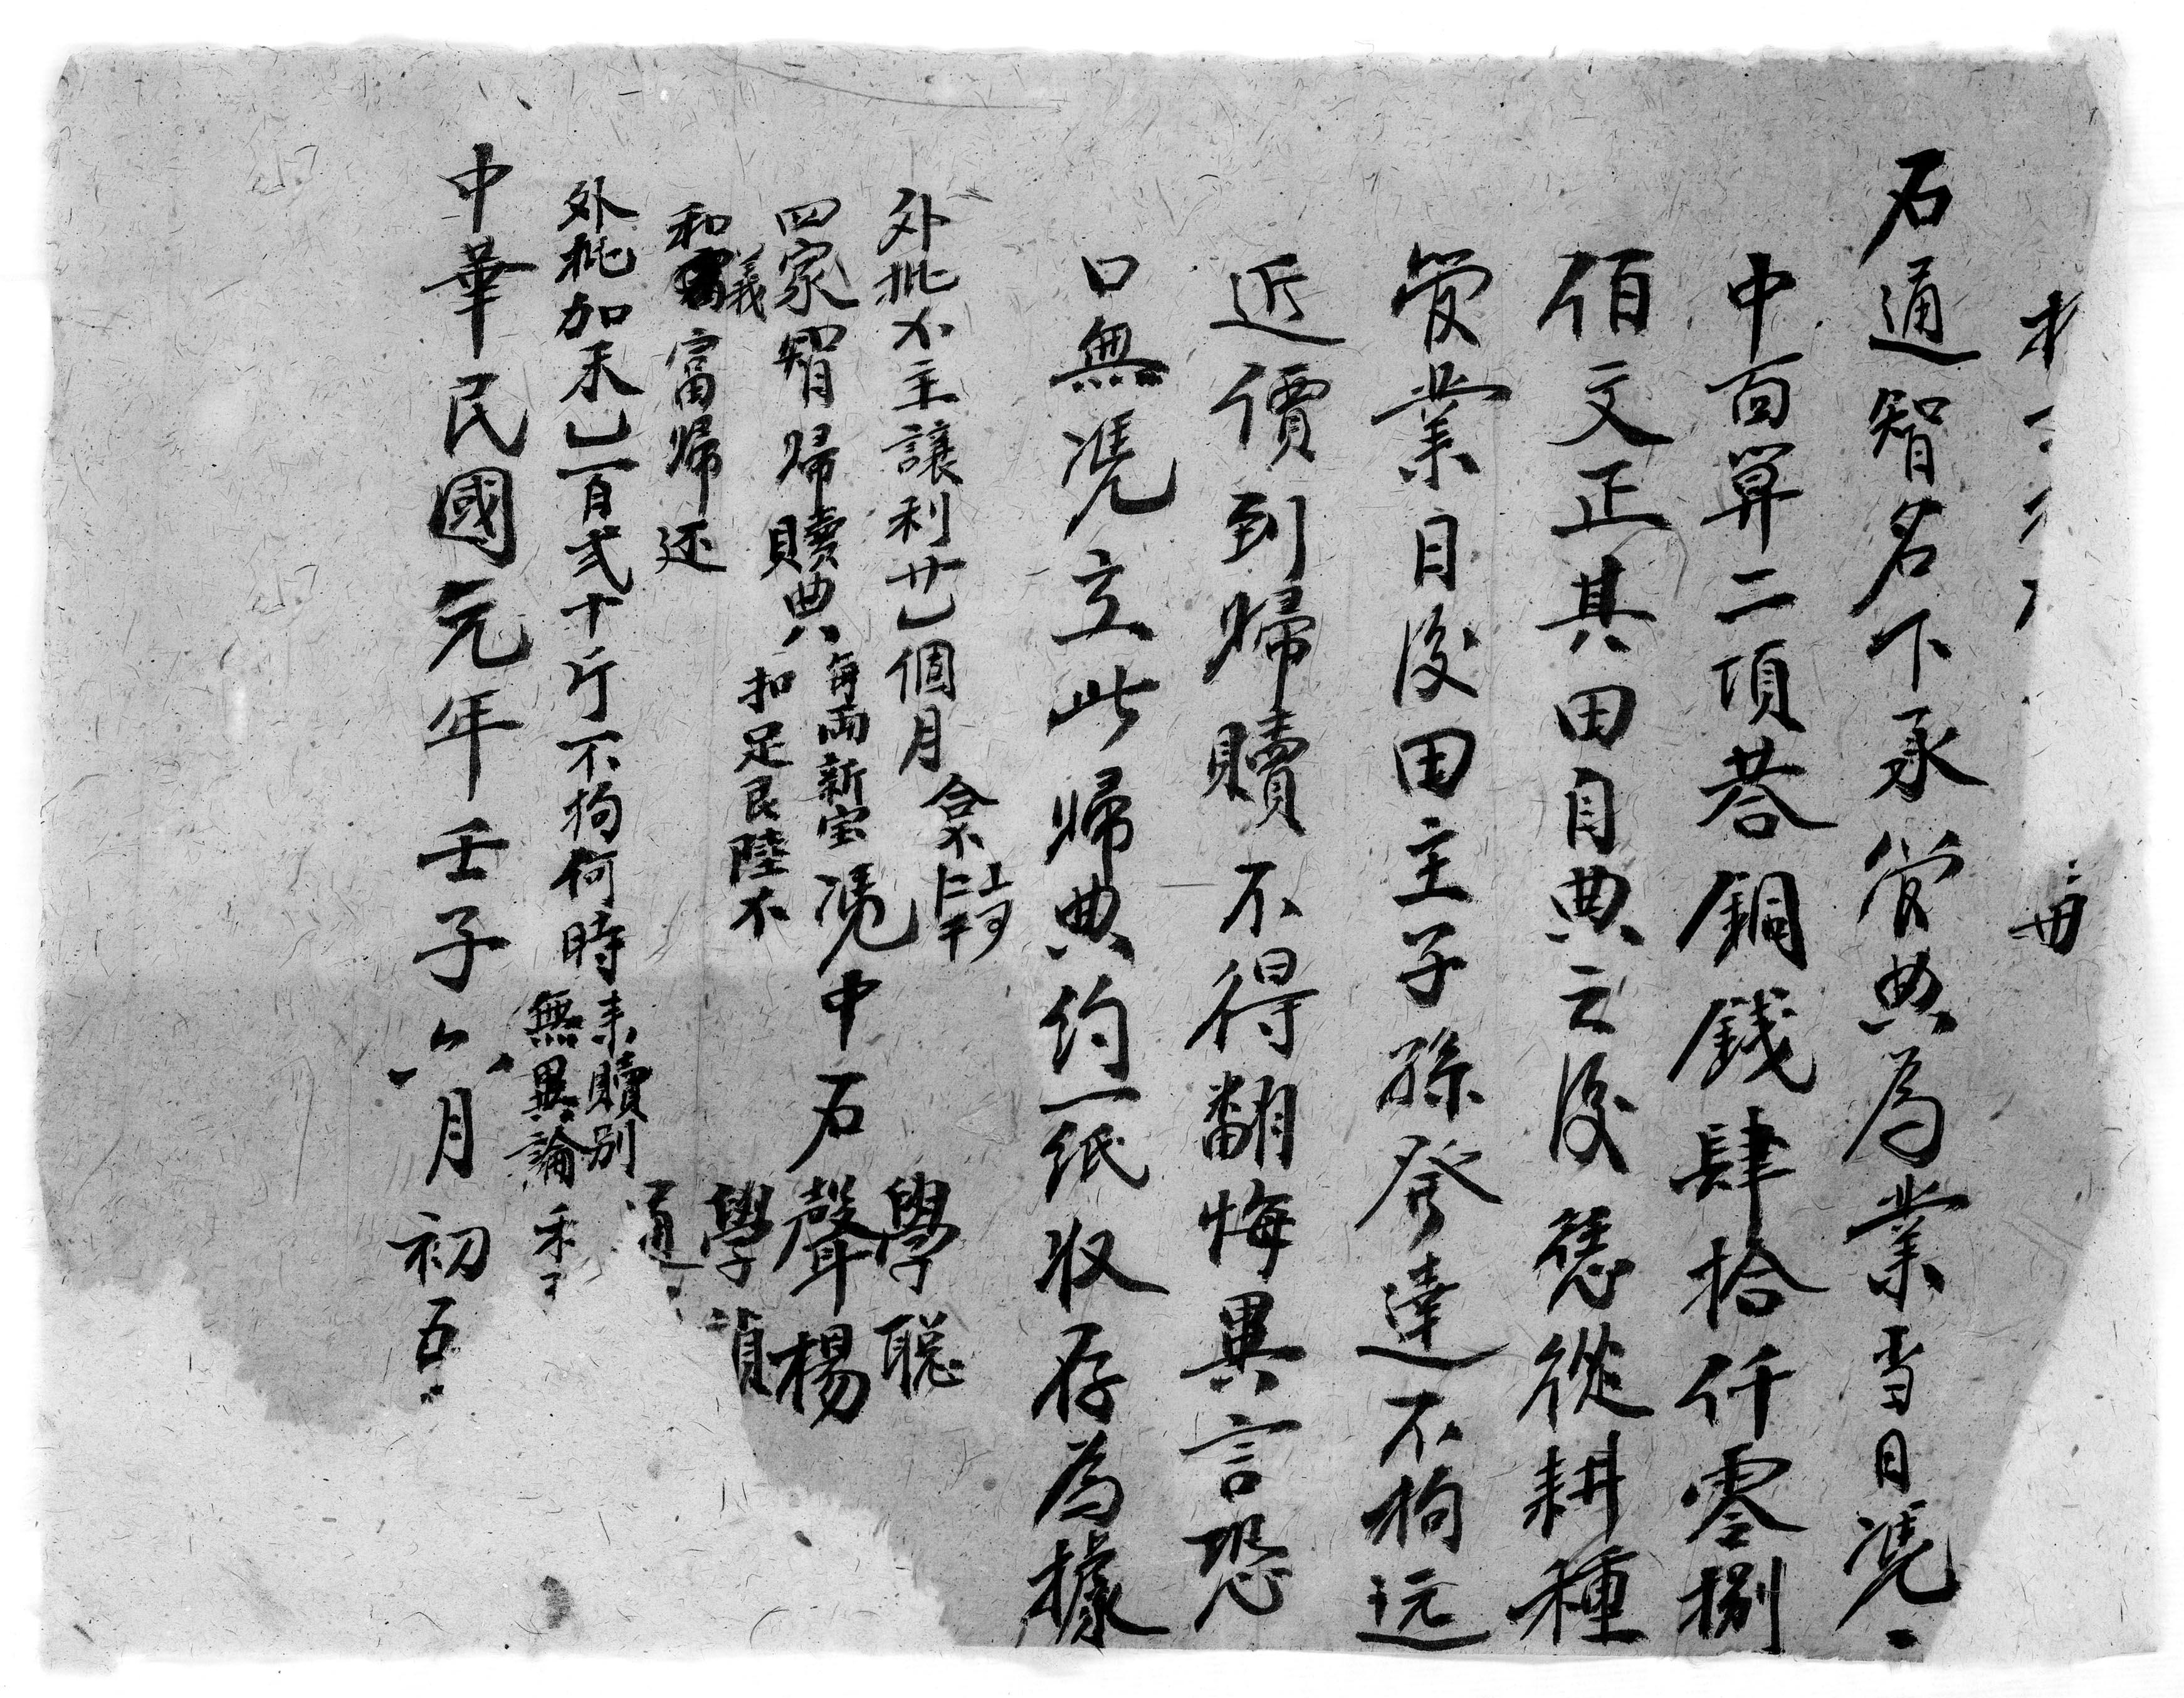 石通智名下承管典為業当日凴
中面算二項荅銅錢肆拾仟零捌
佰文正其田自典之後恁從耕種
管業日後田主子孫發達不拘远
近價到歸贖不得翻悔異言恐
口無凴立此歸典約一紙收存為據
外批 主讓利廿七個月
四家智歸贖典 每両新宝
扣足艮陸 
凴中石 學聰
聲楊
學
和義富歸还
外批加禾乚一百弍十斤不拘何時耒贖別
無異論
中華民國元年壬子六月初五